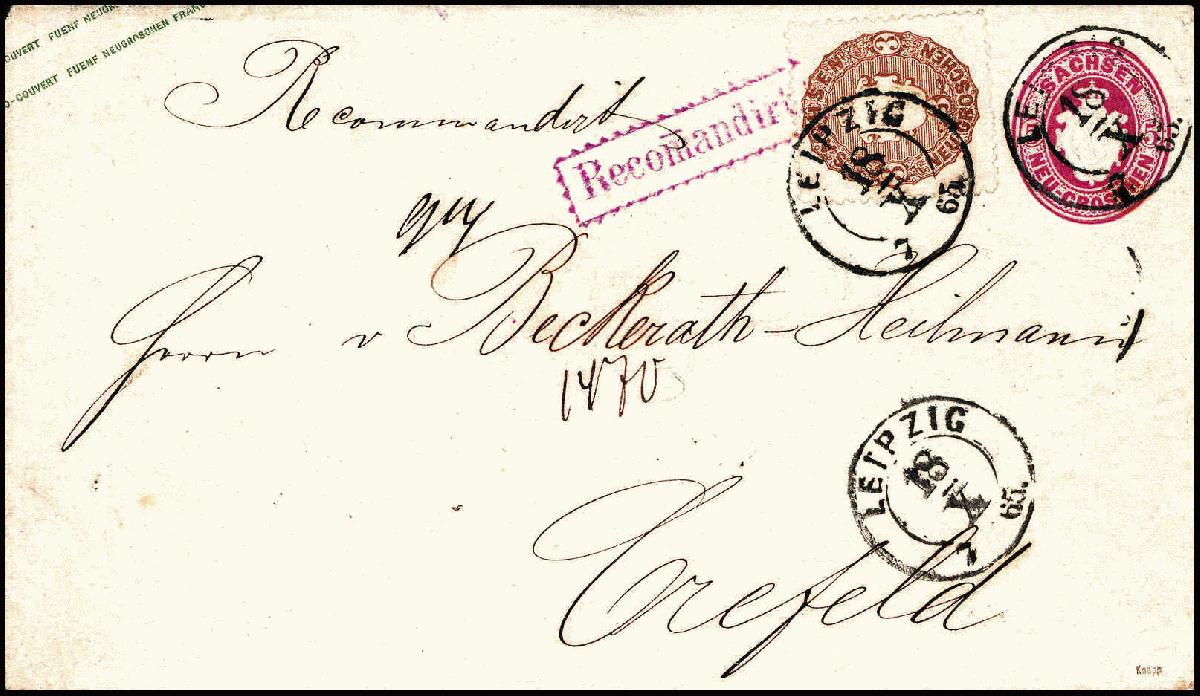 COUVERT FUENF NEUGROSCHEN FRANC
O-COUVERT FUENF NEUGROSCHEN FRANC
Recommandirt
Recomandirt
3
NEU-GROSCHEN
LEIPZIG
18
X
65.
SACHSEN
5
NEU-GROSCHEN
LEIPZIG
18
X
65.
Herrn v Beckerath-Heilmann
1470
LEIPZIG
18
X
65.
Crefeld
Knopp